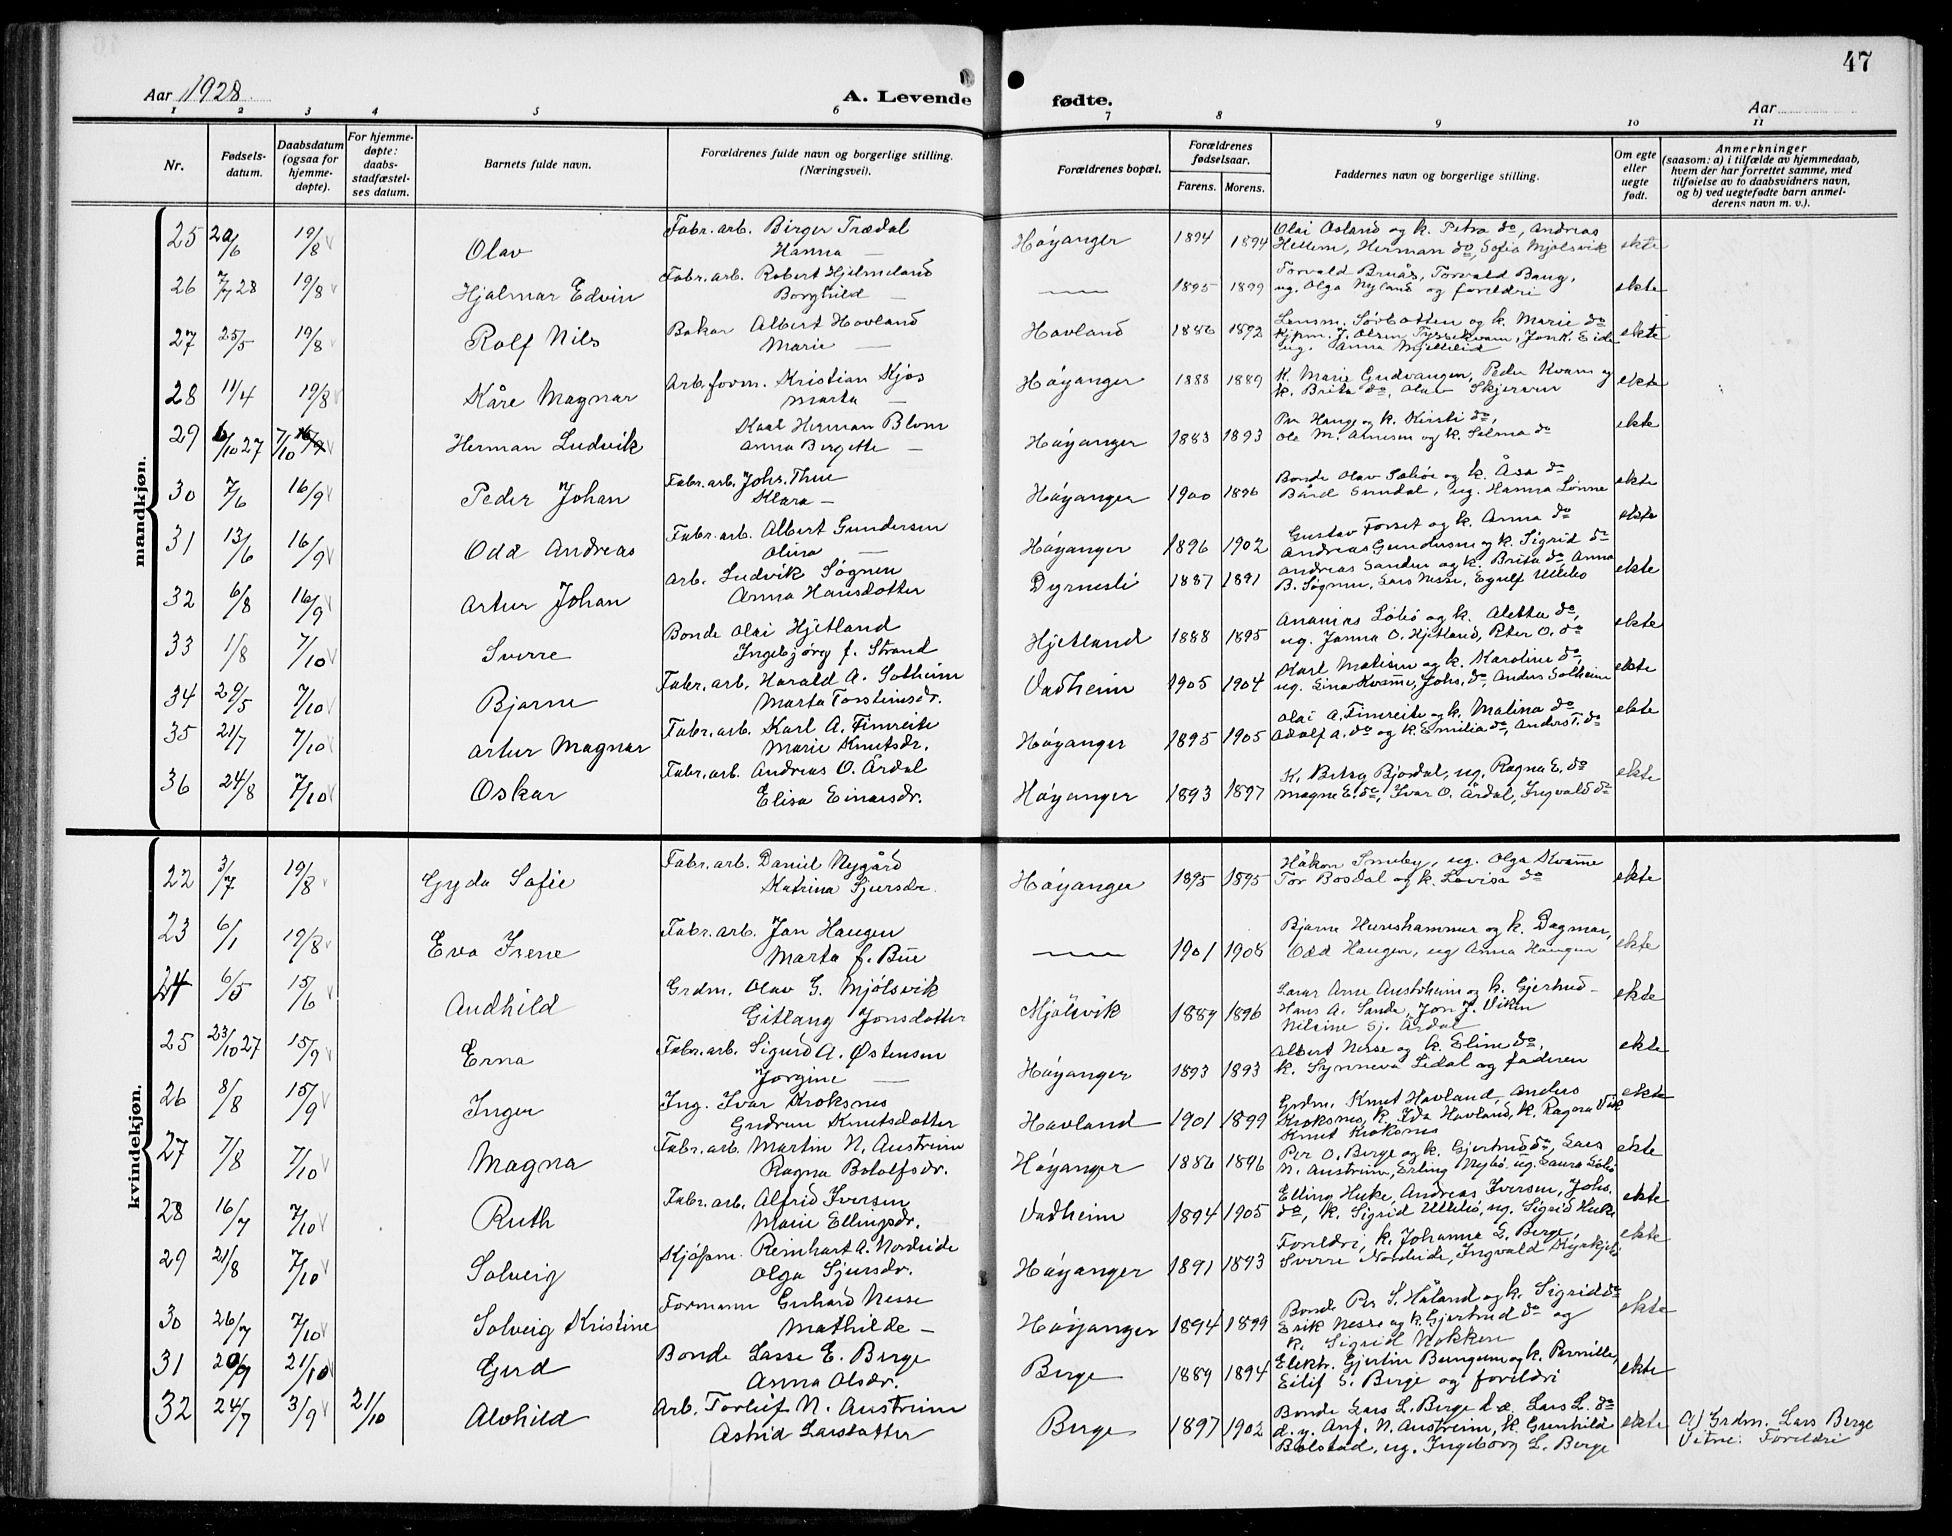 47
Aar 1928
A. Levende fødte.
Aar
1 2 3 4 5 6 7 8 9 10 11
Nr.
Fødsels-
datum.
Daabsdatum
(ogsaa for
hjemme-
døpte).
For hjemme-
døpte:
daabs-
stadfæstel-
ses datum.
Barnets fulde navn.
Forældrenes fulde navn og borgerlige stilling.
(Næringsvei).
Forældrenes bopæl.
Forældrenes
fødselsaar.
Farens. Morens.
Faddernes navn og borgerlige stilling.
Om egte
eller
uegte
født.
Anmerkninger
(saasom: a) i tilfælde av hjemmedaab,
hvem der har forrettet samme, med
tilføielse av to daabsvidners navn,
og b) ved uegtefødte barn anmel-
derens navn m. v.).
mandkjøn.
25 20/6 19/8 Olav Fabr. arb. Birger Trædal
Hanna — Høyanger 1894 1894 Olai Osland og k. Petra do, Andreas
Hellem, Herman do, Sofia Mjølsvik ekte
26 7/7 28 19/8 Hjalmar Edvin Fabr. arb. Robert Hjelmeland
Borghild — 1895 1899 Torvald Bruås, Torvald Baug,
ug. Olga Nyland og foreldri ekte
27 25/5 19/8 Rolf Nils Bakar Albert Hovland
Marie — Hovland 1886 1892 Lensm. Sørbotten og k. Marie do
Kjpm. J. Olsen Tyssekvam, Jon K. Eide
ug. Anna Mjelleid ekte
28 11/4 19/8 Kåre Magnar Arb. form. Kristian Kjøs
Marta — Høyanger 1888 1889 K. Marie Gudvangen, Peder Kvam og
k. Brita do, Olav Skjerven ekte
29 6/10 27 7/10 16/9 Herman Ludvik Karl Herman Blom
Anna Bergette — Høyanger 1883 1893 Per Hauge og k. Kirsti do,
Ole M. Arnesen og k. Selma do ekte
30 7/6 16/9 Peder Johan Fabr. arb. Johs. Thue
Klara — Høyanger 1900 1896 Bonde Olav Solsø og k. Åsa do
Bård Sundal, ug. Hanna Lønne ekte
31 13/6 16/9 Odd Andreas Fabr. arb. Albert Gundersen
Olina — Høyanger 1896 1902 Gustav Forset og k. Anna do
Andreas Gundersen og k. Sigrid do ekte
32 6/8 16/9 Artur Johan Arb. Ludvik Søgnen
Anna Hansdotter Dyrnesli 1887 1891 Andreas Sanden og k. Brita do, Anna
B. Søgnen, Lars Nesse, Eyulf Ullebø ekte
33 1/8 7/10 Sverre Bonde Olai Hjetland
Ingebjørg f. Strand Hjetland 1888 1895 Ananias Løbø og k. Aletta do,
ug. Janna O. Hjetland, Peter O. do ekte
34 29/5 7/10 Bjarne Fabr. arb. Harald A. Solheim
Marta Torsteinsdr. Vadheim 1905 1904 Karl Matisen og k. Karoline do,
ug. Gina Kvamme, Johs. do, Anders Solheim ekte
35 21/7 7/10 Artur Magnar Fabr. arb. Karl A. Fimreite
Marie Knutsdr. Høyanger 1895 1905 Olai A. Fimreite og k. Malina do
Adolf A. do og k. Emilia do, Anders T. do ekte
36 24/8 7/10 Oskar Fabr. arb. Andreas O. Årdal
Elisa Einarsdr. Høyanger 1893 1897 K. Betsy Bjordal, ug. Ragna E. do
Magne E. do, Ivar O. Årdal, Ingvald do ekte
kvindekjøn.
22 3/7 19/8 Gyda Sofie Fabr. arb. Daniel Nygård
Katrina Sjursdr. Høyanger 1895 1895 Håkon Smeby, ug. Olga Kvamme
Tor Bosdal og k. Lovisa do ekte
23 6/1 19/8 Eva Irene Fabr. arb. Jan Haugen
Marta f. Bue — 1901 1908 Bjarne Huneshammer og k. Dagmar,
Odd Haugen, ug Anna Haugen ekte
24 6/5 15/6 Audhild Grdm. Olav G. Mjølsvik
Gitlaug Jonsdotter Mjölsvik 1889 1896 Lærar Arne Austrheim og k. Gjertrud —
Hans A. Sande, Jon J. Viken
Nilsine Sj. Årdal ekte
25 23/10 27 15/9 Erna Fabr. arb. Sigurd A. Østensen
Jorgine — Høyanger 1893 1893 Albert Nesse og k. Eline do,
k. Synneva Lidal og faderen ekte
26 8/8 15/9 Inger Ing. Ivar Kroksnes
Gudrun Knutsdotter Hovland 1901 1899 Grdm. Knut Hovland, Anders
Kroksnes, k. Ida Hovland, k. Ragna Vik
Knut Kroksnes ekte
27 7/8 7/10 Magna Fabr. arb. Martin N. Austreim
Ragna Botolfsdr. Høyanger 1886 1896 Per O. Berge og k. Gjertrud do, Lars
N. Austreim, Erling Nybø, ug. Laura Løbø ekte
28 16/7 7/10 Ruth Fabr. arb. Alfrid Iversen
Marie Ellingsdr. Vadheim 1894 1905 Elling Huke, Andreas Iversen, Johs.
do, k. Sigrid Ullebø, ug. Sigrid Huke ekte
29 21/8 7/10 Solveig Kjøpm. Reinhart A. Nordeide
Olga Sjursdr. Høyanger 1891 1893 Foreldri, k. Johanne L. Berge,
Sverre Nordeide, Ingvald Kyrkjebø ekte
30 26/7 7/10 Solveig Kristine Formann Gerhard Nesse
Mathilde — Høyanger 1894 1899 Bonde Per S. Håland og k. Sigrid do
Erik Nesse og k. Gjertrud do og
k. Sigrid Nokken ekte
31 20/9 21/10 Gerd Bonde Lasse E. Berge
Anna Olsdr. Berge 1889 1894 Elektr. Gjertin Bungum og k. Pernille,
Eilif S. Berge og foreldri ekte
32 24/7 3/9 21/10 Alvhild Arb. Torleif N. Austreim
Astrid Larsdotter Berge 1897 1902 Bonde Lars L. Berge d. e. Lars L. do
d. y. Anf. N. Austreim, k. Gunhild
Bolstad, ug. Ingeborg L. Berge ekte a) Grdm. Lars Berge
Vitne: Foreldri